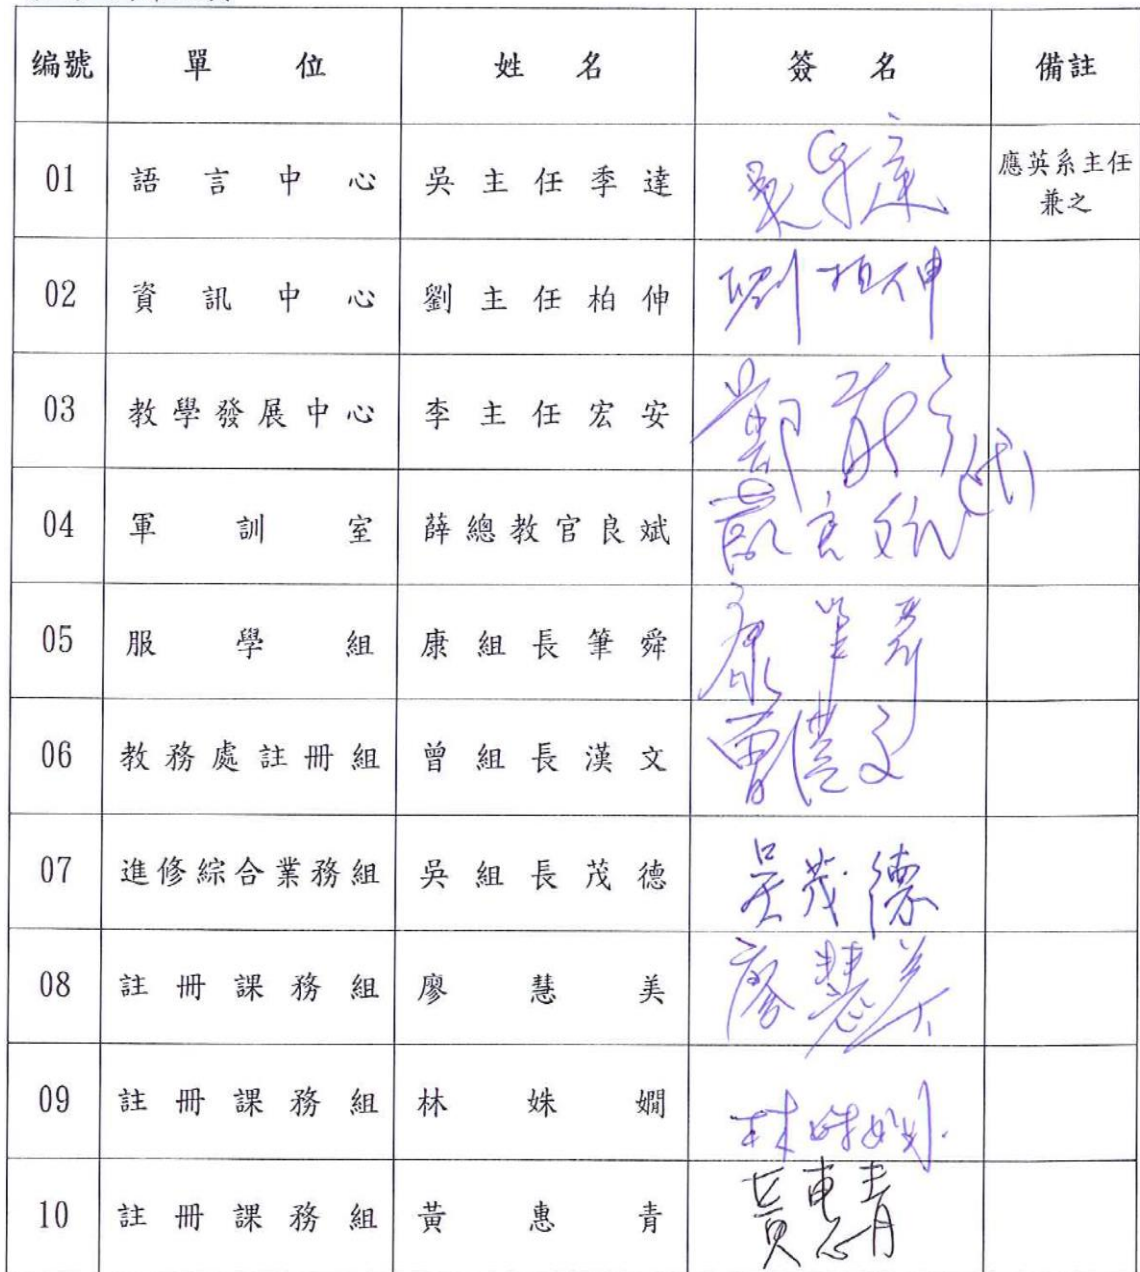 編號 單位 姓名 簽名 備註
01 語言中心 吳主任季達 應英系主任
兼之
02 資訊中心 劉主任柏伸 劉柏伸
03 教學發展中心 李主任宏安 (代)
04 軍訓室 薛總教官良斌 薛良斌
05 服學組 康組長筆舜 康筆舜
06 教務處註冊組 曾組長漢文 曾漢文
07 進修綜合業務組 吳組長茂德 吳茂德
08 註冊課務組 廖慧美 廖慧美
09 註冊課務組 林姝嫺 林姝嫺
10 註冊課務組 黃惠青 黃惠青